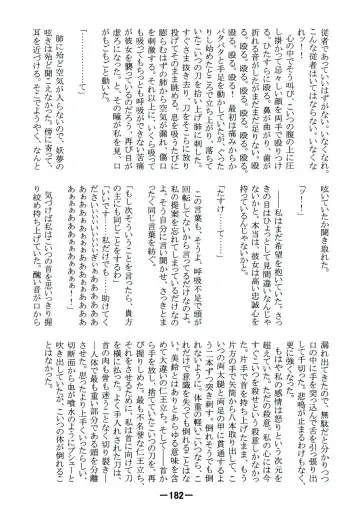 従者であっていいはずがない。いなくなれ、
こんな従者はいてはならない。いなくな
れッ！」
心の中でそう叫び、こいつの腹の上に圧
し掛かって忌々しい顔を両手で殴りつけ
る。ひたすらに殴る。鼻が曲がり、歯が
折れる音がしたがまだまだ足りない。殴
る。殴る、殴る！　最初は痛みからか
バタバタと手足を動かしていたが、ぐった
りし始めたところで立ち上がり、落ちて
いたこいつの刀を拾い上げ、肺に刺した。
すぐさま抜き去り、刀をそこらに放り
投げてそのまま眺める。息を吸うたびに
膨らむはずの肺から空気が漏れ、傷口
を刺激する。それ以上に、いくら吸って
も吸ってもちっとも呼吸ができない苦痛
が彼女を襲っているのだろう。再び目が
虚ろになった。と、その瞳が私を見、口
がもごもごと動く。
「…………て」
肺に殆ど空気が入らないので、妖夢の
呟きは殆ど聞こえなかった。傍に寄って
耳を近づける。そこでようやく、なんと
呟いていたか聞き取れた。
「ッ！！」
私はまだ希望を抱いていた。さっ
きの目はひょっとして見間違いなんじゃ
ないかと。本当は、彼女は高い忠誠心を
持っているんじゃないかと。
「たすけ……て……」
この言葉も、そうよ、呼吸不足で頭が
回転してないから言ってるだけなのよ。
私の提案を忘れてしまっているだけなの
よ。そう自分に言い聞かせ、さっきとま
ったく同じ言葉を紡いだ。
「もし次そういうことを言ったら、貴方
の主にも同じことをするわ」
「いいです……私だけでも……助けてく
ださいいいいいいぎいいいでいああああ
あああああああああああああああああ
ああああああああああああ！！」
気づけば私はこいつの首を思いっきり握
り絞め持ち上げていた。醜い音が口から
漏れ出てきたので、無駄だと分かりつつ
口の中に手を突っ込んで舌を引っ張り出
して千切った。悲鳴が止まるわけもなく
更に強くなった。
もはや私の感情は怒りという次元を
超えていた。ただの殺意。私の心には今
すぐこいつを殺せという殺意しかなかっ
た。片手で首を持ち上げたまま、もう
片方の手で矢筒から八本取り出して、こ
いつの両太腿と両足の甲に貫通するよ
うに地面に突き刺す。倒れそうでも倒
れないように、体重の軽いこいつなら、こ
れだけで意識を失っても倒れることはな
い。美鈴とはありとあらゆる意味を含
めて大違いの仁王立ち。そして――首か
ら手を放し、捨てていたこいつの刀を、再
び握りしめた。せめて最後に仁王立ち
それをさせるため、私は首に向けて刀
を横に払った。よく手入れされた刀は、
首の肉も骨も迷うことなく切り裂き――
――人体で最も重い部分である頭を分離
させた。思ったより上手くいったらしく、
切断面から血が噴水のようにプシューと
吹き出していたが、こいつの体が倒れるこ
とはなかった。
ー182ー